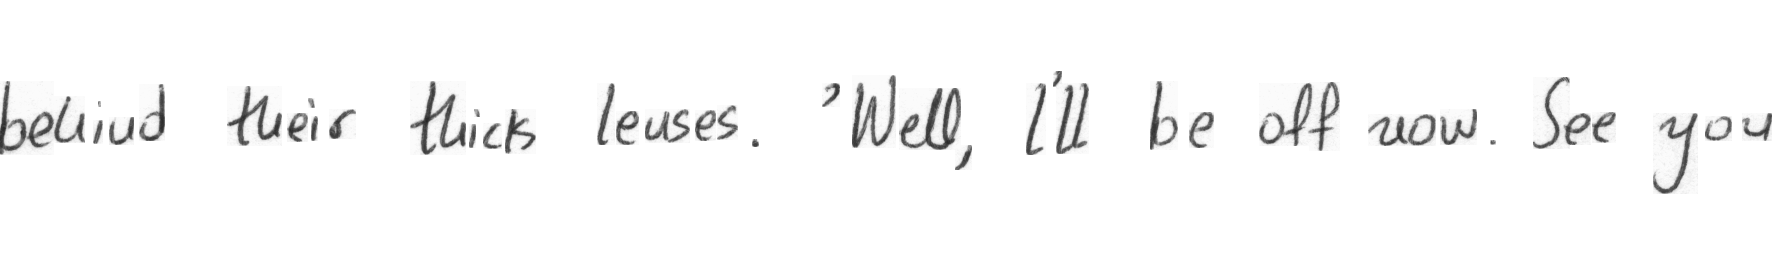 behind their thick lenses. 'Well, I'll be off now. See you